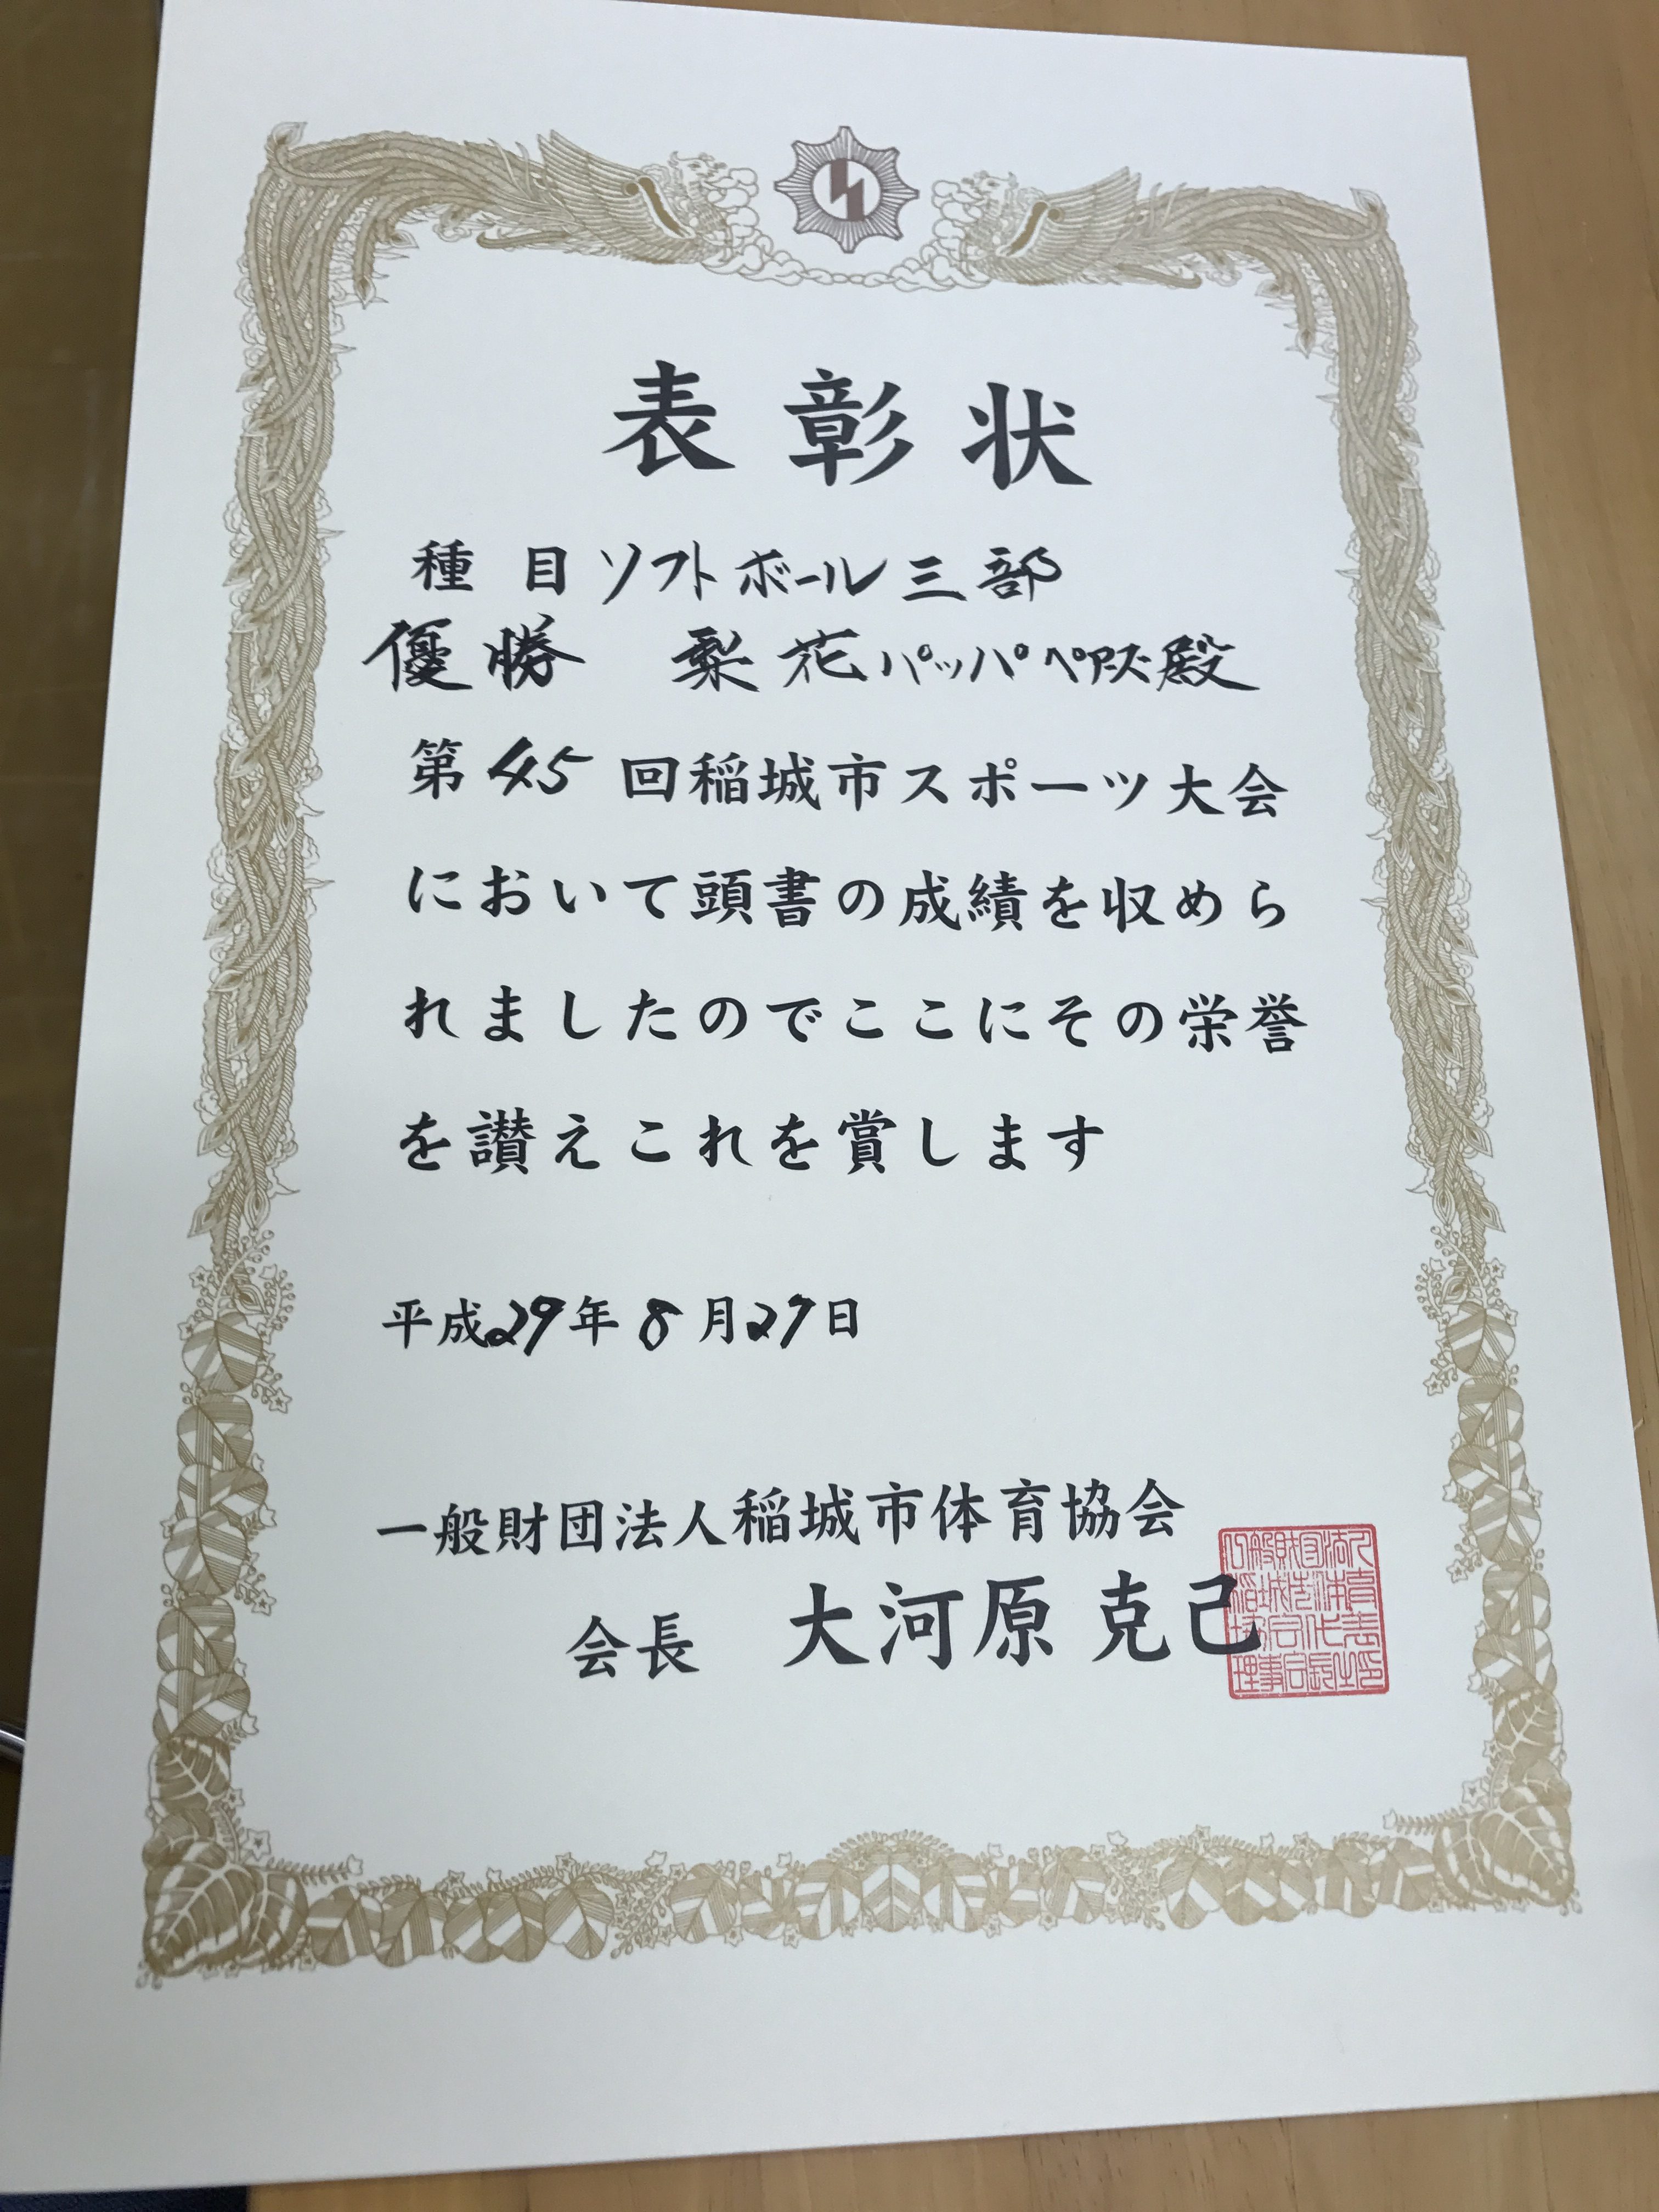 表彰状
種目 ソフトボール三部
優勝 梨花パッパペアーズ殿
第45回稲城市スポーツ大会
において頭書の成績を収めら
れましたのでここにその栄誉
を讃えこれを賞します
平成29年8月27日
一般財団法人稲城市体育協会
会長 大河原克己